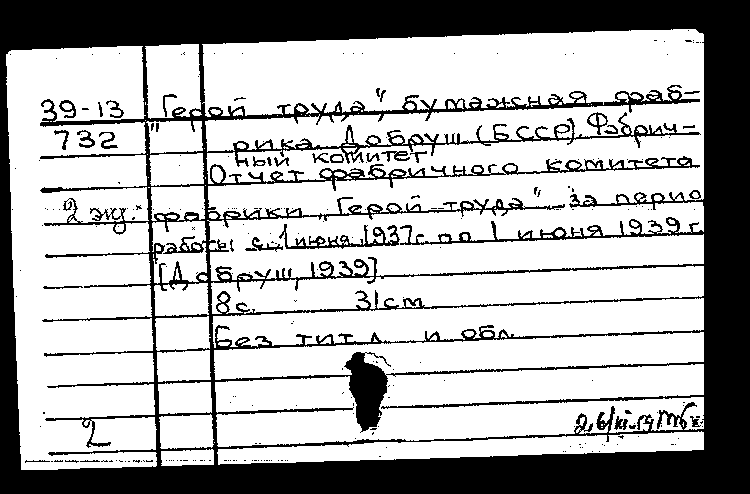 39-13 „Герой труда", бумажная фаб-
732 рика. Добруш (БССР). Фабрич-
ный комитет
Отчет фабричного комитета
2 экз. фабрики „Герой труда" за перио
работы с 1 июня 1937г. по 1 июня 1939 г.
[Добруш, 1939].
8 с. 31 см
Без тит. л. и обл.
2